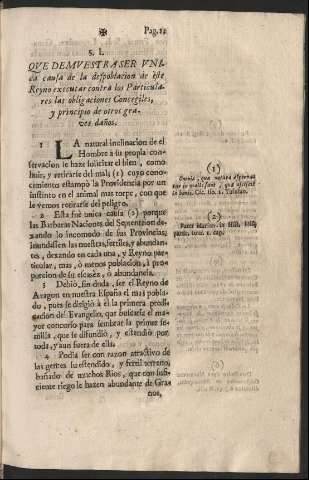 ✠ Pag. 12
§. I.
QVE DEMVESTRA SER VNI-
ca causa de la despoblacion de este
Reyno executar contra los Particula-
res las obligaciones Concegiles,
y principio de otros gra-
ves daños.
1 LA natural inclinacion de el
Hombre à su propia con-
servacion le haze solicitar el bien, como
huir, y retirarse del mal; (1) cuyo cono-
cimiento estampò la Providencia por un
instinto en el animal mas torpe, con que
le vemos retirarse del peligro.
2 Esta fuè unica causa (2) porque
las Barbaras Naciones del Septentrion de-
xando lo incomodo de sus Provincias,
inundassen las nuestras, fertiles, y abundan-
tes, dexando en cada una, y Reyno par-
ticular, mas, ò menos poblacion, à pro-
porcion de su escasèz, ò abundancia.
3 Debiò, sin duda, ser el Reyno de
Aragon en nuestra España el mas pobla-
do, pues se dirigiò à èl la primera predi-
cacion del Evangelio, que buscaria el ma-
yor concurso para sembrar la primer se-
milla, que se difundiò, y estendiò por
toda, y aun fuera de ella.
4 Podia ser con razon atractivo de
las gentes su estendido, y fertil terreno,
bañado de muchos Rios, que con sufi-
ciente riego le hazen abundante de Gra-
nos,
(1)
Omnia, que natura aspernatur
in malis sunt, que asciscit
in bonis. Cic. lib.
(2)
Pater Mariana in Hist. Hisp.
cap.